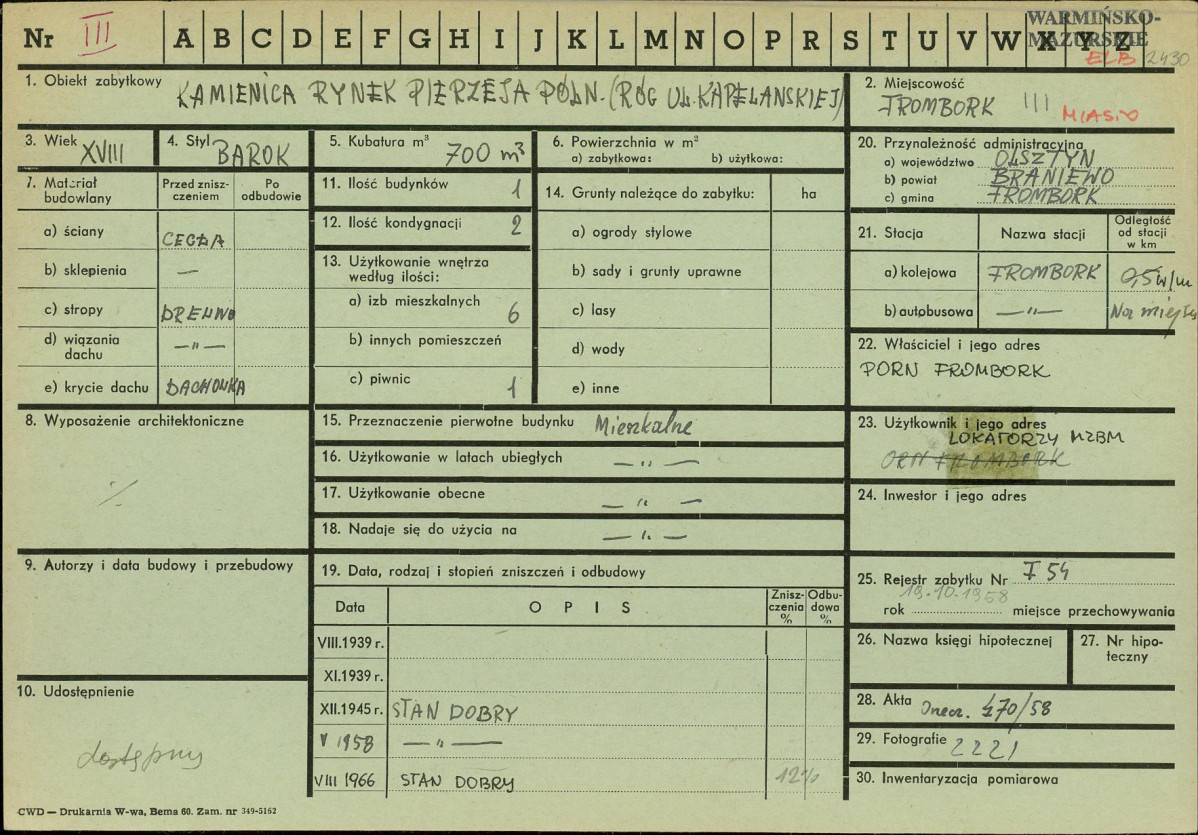 Nr III A B C D E F G H I J K L M N O P R S T U V W X Y Z
WARMIŃSKO-
MAZURSKIE
ELB 2430
1. Obiekt zabytkowy KAMIENICA RYNEK PIERZEJA PÓŁN. (RÓG UL. KAPELAŃSKIEJ)
2. Miejscowość
FROMBORK III MIASTO
3. Wiek XVIII
4. Styl BAROK
5. Kubatura m³ 700 m³
6. Powierzchnia w m²
a) zabytkowa: b) użytkowa:
20. Przynależność administracyjna
a) województwo OLSZTYN
b) powiat BRANIEWO
c) gmina FROMBORK
7. Materiał budowlany
Przed zniszczeniem
Po odbudowie
a) ściany CEGŁA
b) sklepienia —
c) stropy DREWNO
d) wiązania dachu — „ —
e) krycie dachu DACHÓWKA
11. Ilość budynków 1
12. Ilość kondygnacji 2
13. Użytkowanie wnętrza
według ilości:
a) izb mieszkalnych 6
b) innych pomieszczeń
c) piwnic 1
14. Grunty należące do zabytku: ha
a) ogrody stylowe
b) sady i grunty uprawne
c) lasy
d) wody
e) inne
21. Stacja Nazwa stacji
Odległość
od stacji
w km
a) kolejowa FROMBORK 0,5
b) autobusowa — „ — Na miejscu
22. Właściciel i jego adres
PORN FROMBORK
8. Wyposażenie architektoniczne
15. Przeznaczenie pierwotne budynku Mieszkalne
16. Użytkowanie w latach ubiegłych — „ —
17. Użytkowanie obecne — „ —
18. Nadaje się do użycia na — „ —
23. Użytkownik i jego adres
LOKATORZY MZBM
ORN FROMBORK
24. Inwestor i jego adres
9. Autorzy i data budowy i przebudowy
19. Data, rodzaj i stopień zniszczeń i odbudowy
Data O P I S
Zniszczenia %
Odbudowa %
VIII.1939 r.
XI.1939 r.
XII.1945 r. STAN DOBRY
V 1958 — „ —
VIII 1966 STAN DOBRY 12%
25. Rejestr zabytku Nr F 54
19.10.1958
rok miejsce przechowywania
26. Nazwa księgi hipotecznej
27. Nr hipoteczny
28. Akta 170/58
29. Fotografie 2221
30. Inwentaryzacja pomiarowa
10. Udostępnienie
dostępny
CWD — Drukarnia W-wa, Bema 60. Zam. nr 349-5162